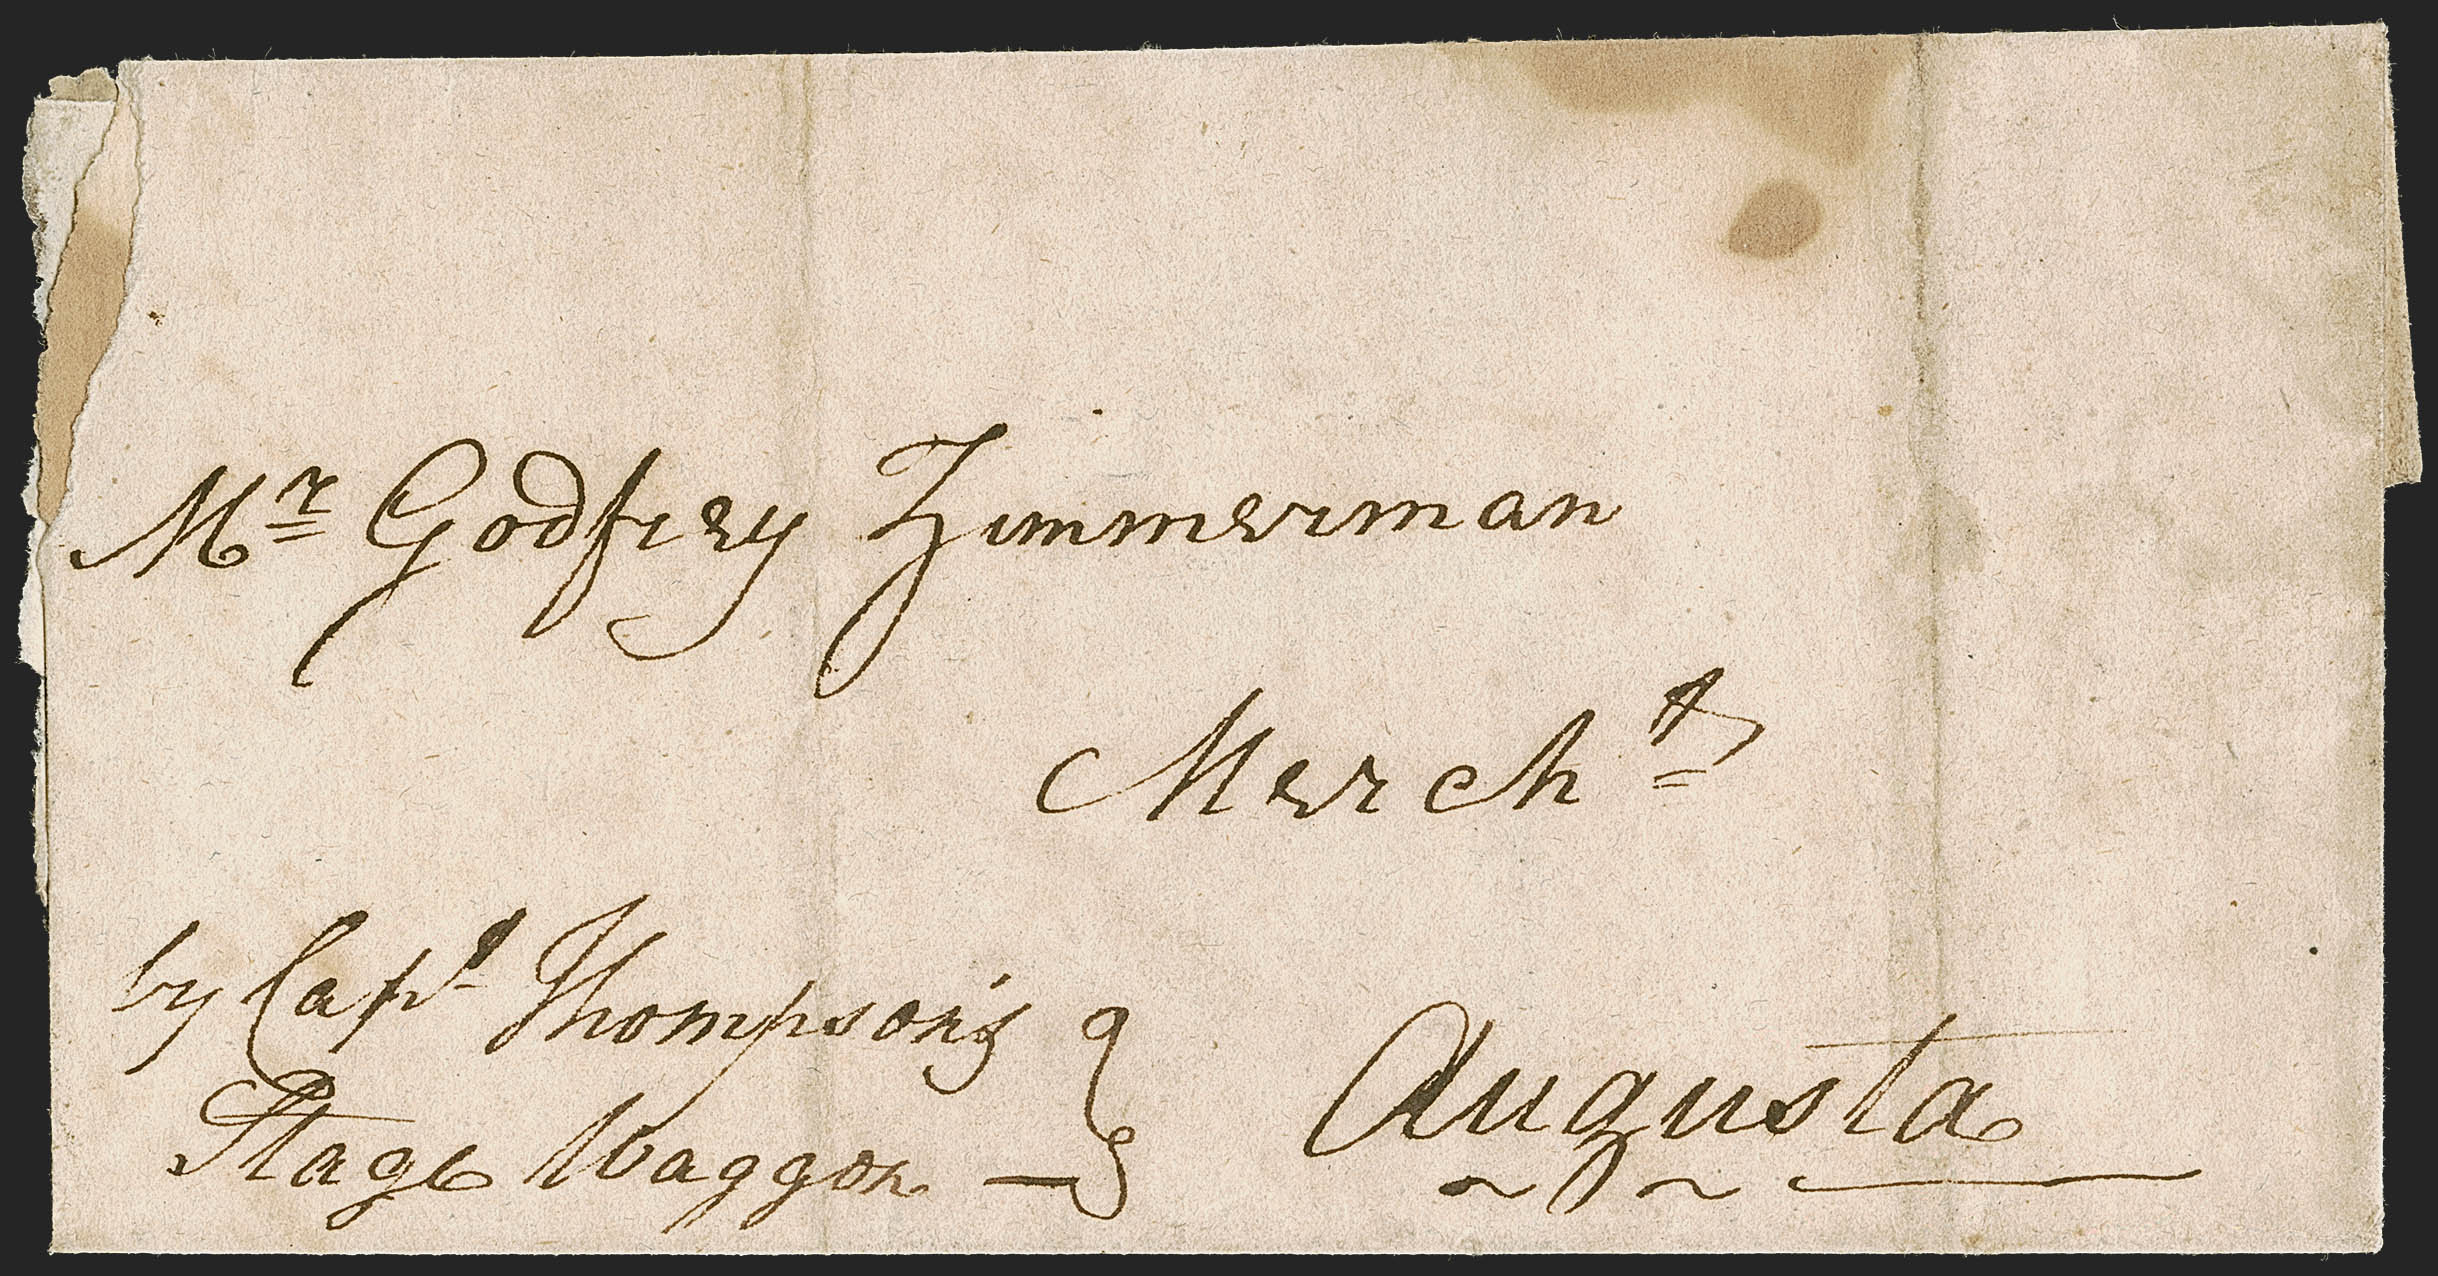 Mr Godfrey Zimmerman
Mercht
by Capt Thompson's
Stage Waggon
Augusta